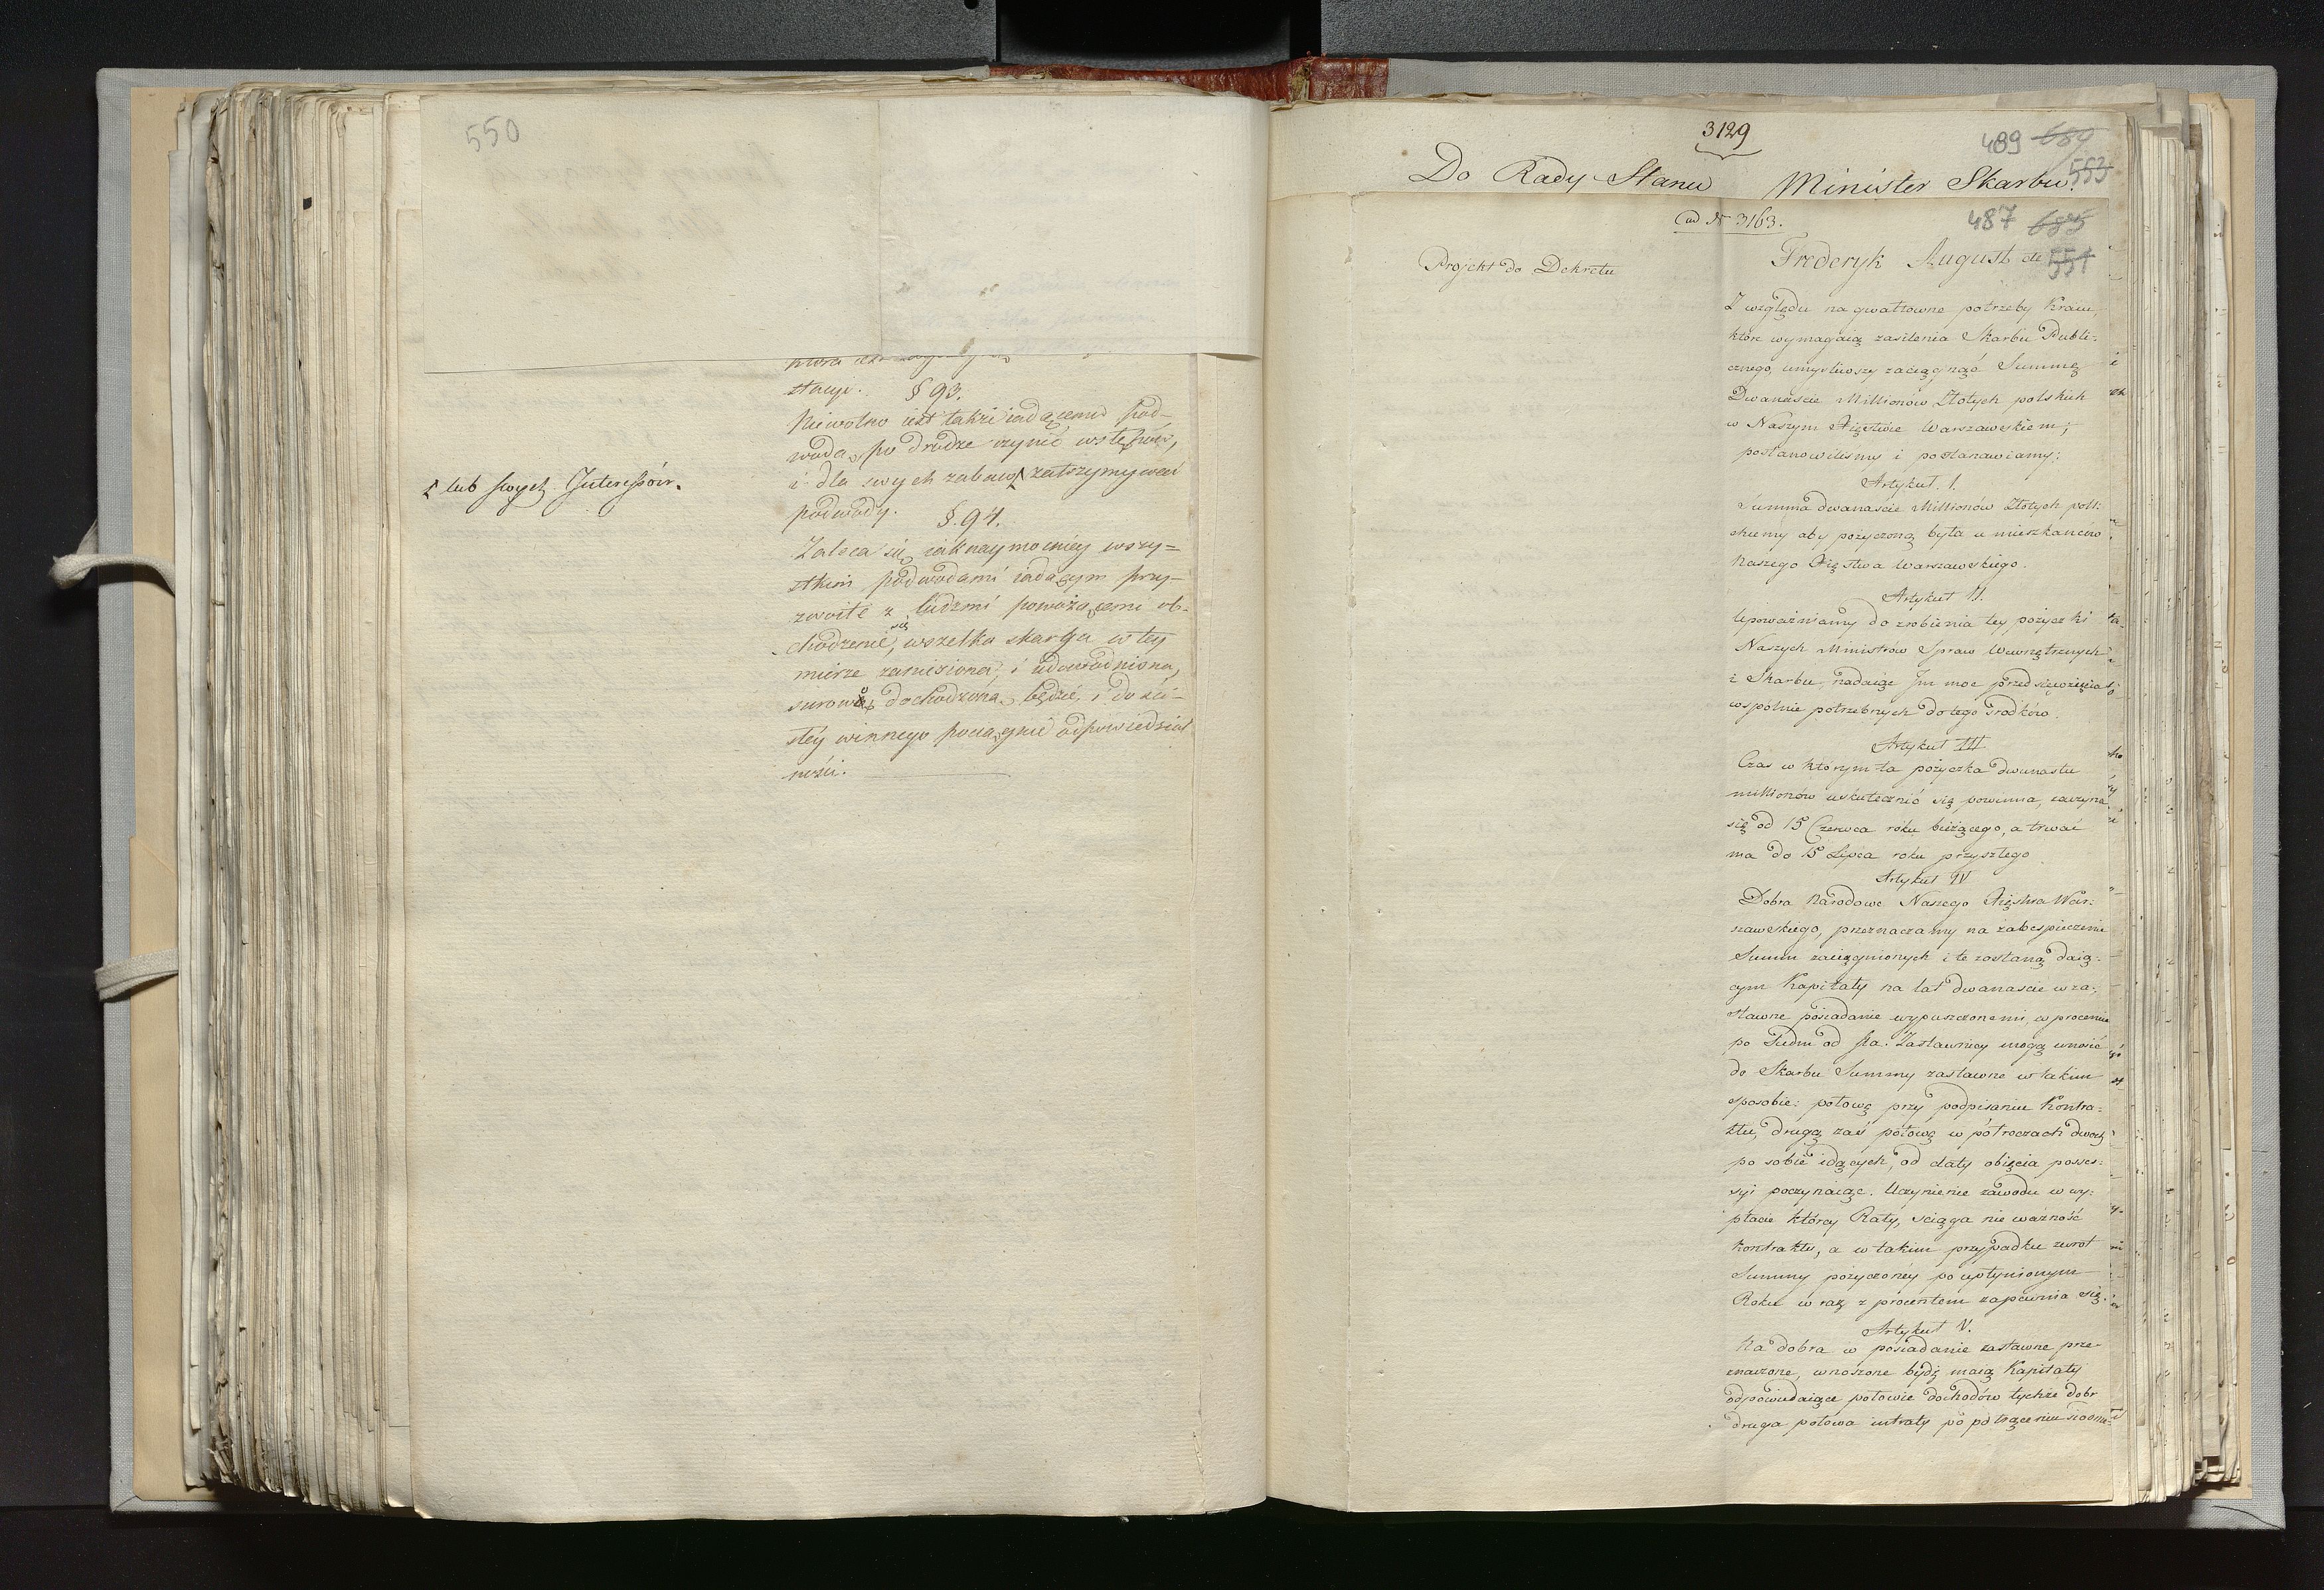 550
stacyi. § 93.
Niewolno iest także iadącemu pod-
wodą, po drodze czynić wstępów,
i dla swych zabaw zatrzymywać
lub swych Interessów.
podwody. § 94.
Zaleca się iak naymocniey wszy=
stkim podwodami iadącym przy-
zwoite z ludzmi powożącemi ob-
chodzenie się, wszelka skarga w tey
mierze zaniesiona, i udowodniona,
surowo dochodzona będzie, i do ści-
słey winnego pociągnie odpowiedzial
ności.
3129
489 689
553
Do Rady Stanu Minister Skarbu.
ad N 3163.
487 685
551
Projekt do Dekretu
Frederyk August etc
Z względu na gwałtowne potrzeby Kraiu,
które wymagaią zasilenia Skarbu Publi:
cznego, umyśliwszy zaciągnąć Summę
Dwanaście Millionów Złotych polskich
w Naszym Xięstwie Warszawskiem;
postanowiliśmy i postanawiamy:
Artykuł. I.
Summa dwanaście Millionów Złotych pols:
chcemy aby pożyczoną była u mieszkańców
Naszego Xięstwa Warszawskiego.
Artykuł II.
Upoważniamy do zrobienia tey pożyczki
Naszych Ministrów Spraw Wewnętrznych
i Skarbu, nadaiąc Im moc przedsięwzięcia
wspólnie potrzebnych do tego środków.
Artykuł III
Czas w którym ta pożyczka dwunastu
millionów uskutecznić się powinna, zaczyna
się od 15 Czerwca roku bieżącego, a trwać
ma do 15 Lipca roku przyszłego
Artykuł IV
Dobra Narodowe Naszego Xięstwa War:
szawskiego, przeznaczamy na zabespieczenie
Summ zaciągnionych i te zostaną daią:
cym Kapitały na lat dwanaście w za:
stawne posiadanie wypuszczonemi, w procencie
po siedm od sta. Zastawnicy mogą wnosić
do Skarbu Summy zastawne w takim
sposobie: połowę przy podpisaniu Kontra:
ktu, drugą zaś połowę w półroczach dwóch
po sobie idących, od daty obięcia posses:
syi poczynaiąc. Uczynienie zawodu w wy:
płacie którey Raty, sciąga nie ważność
Kontraktu, a w takim przypadku zwrot
Summy pożyczoney po upłynionym
Roku w raz z procentem zapewnia się.
Artykuł V.
Na dobra w posiadanie zastawne prze-
znaczone, wnoszone bydź maią Kapitały
odpowiadaiące połowie dochodów tychże dobr
druga połowa intraty po potrąceniu